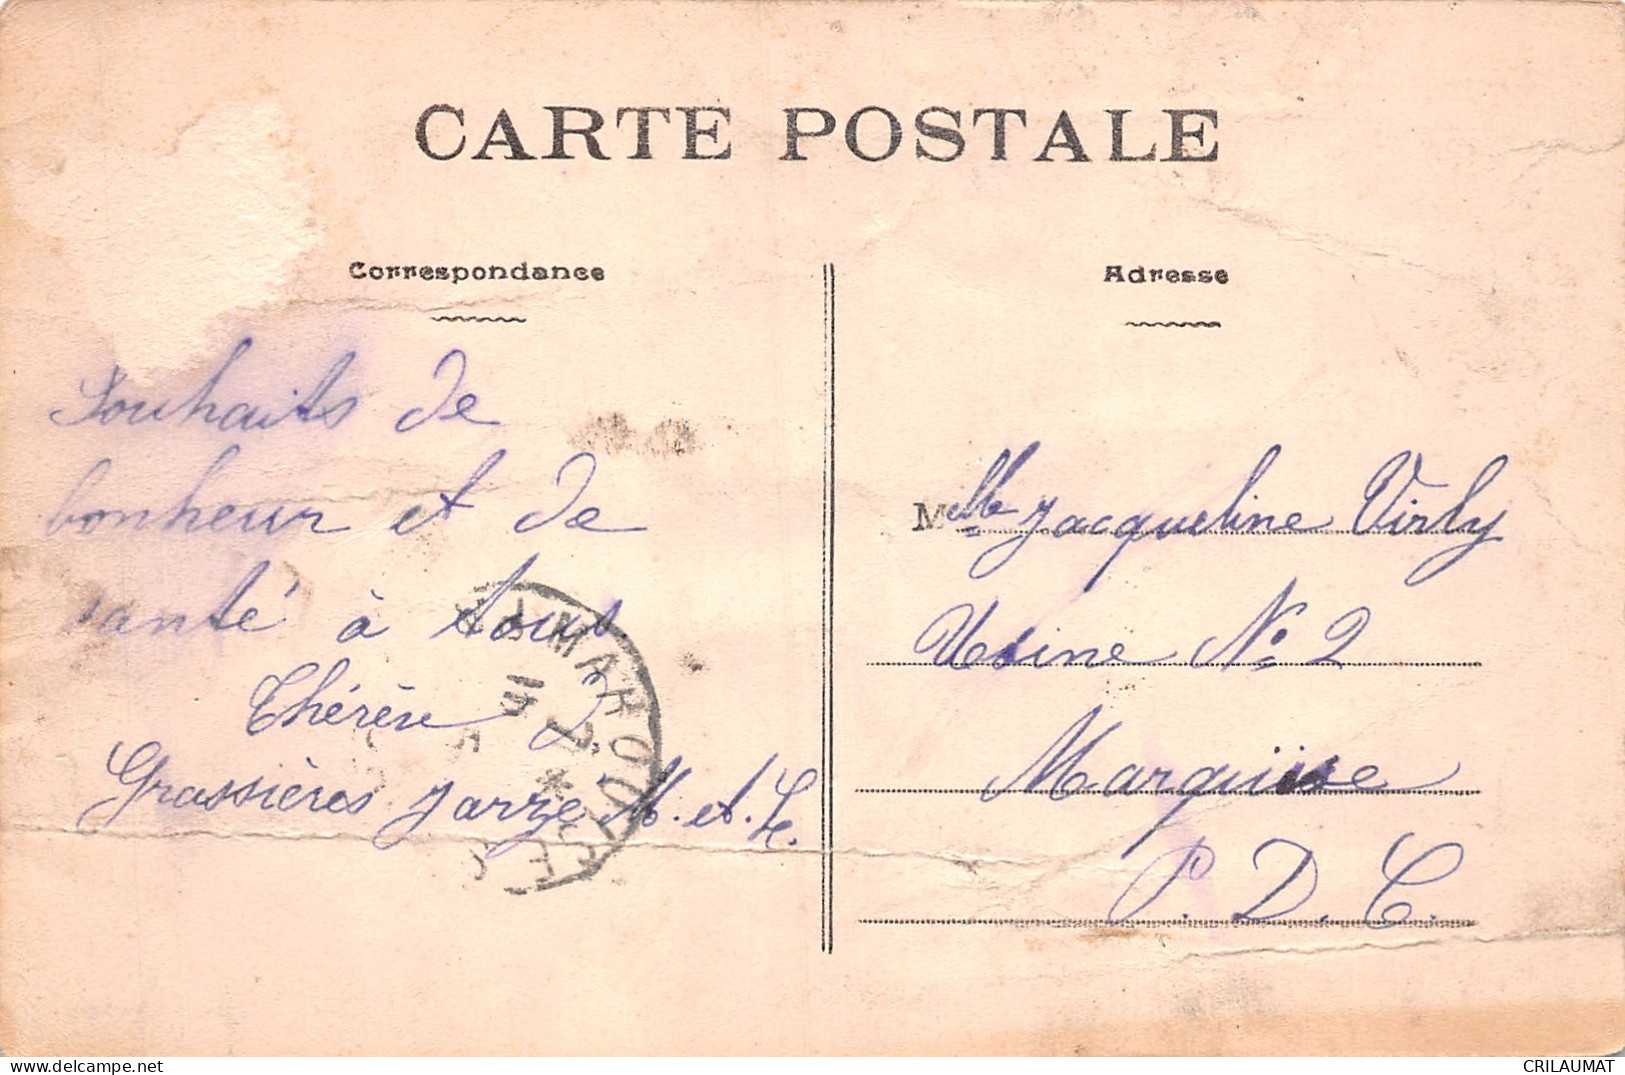 CARTE POSTALE
Correspondance
Souhaits de
bonheur et de
santé à tous
Thérèse J.
Grassières Jarze M. et L.
Adresse
Melle Jacqueline Virly
Usine No 2
Marquise
P. D. C.
CRILAUMAT